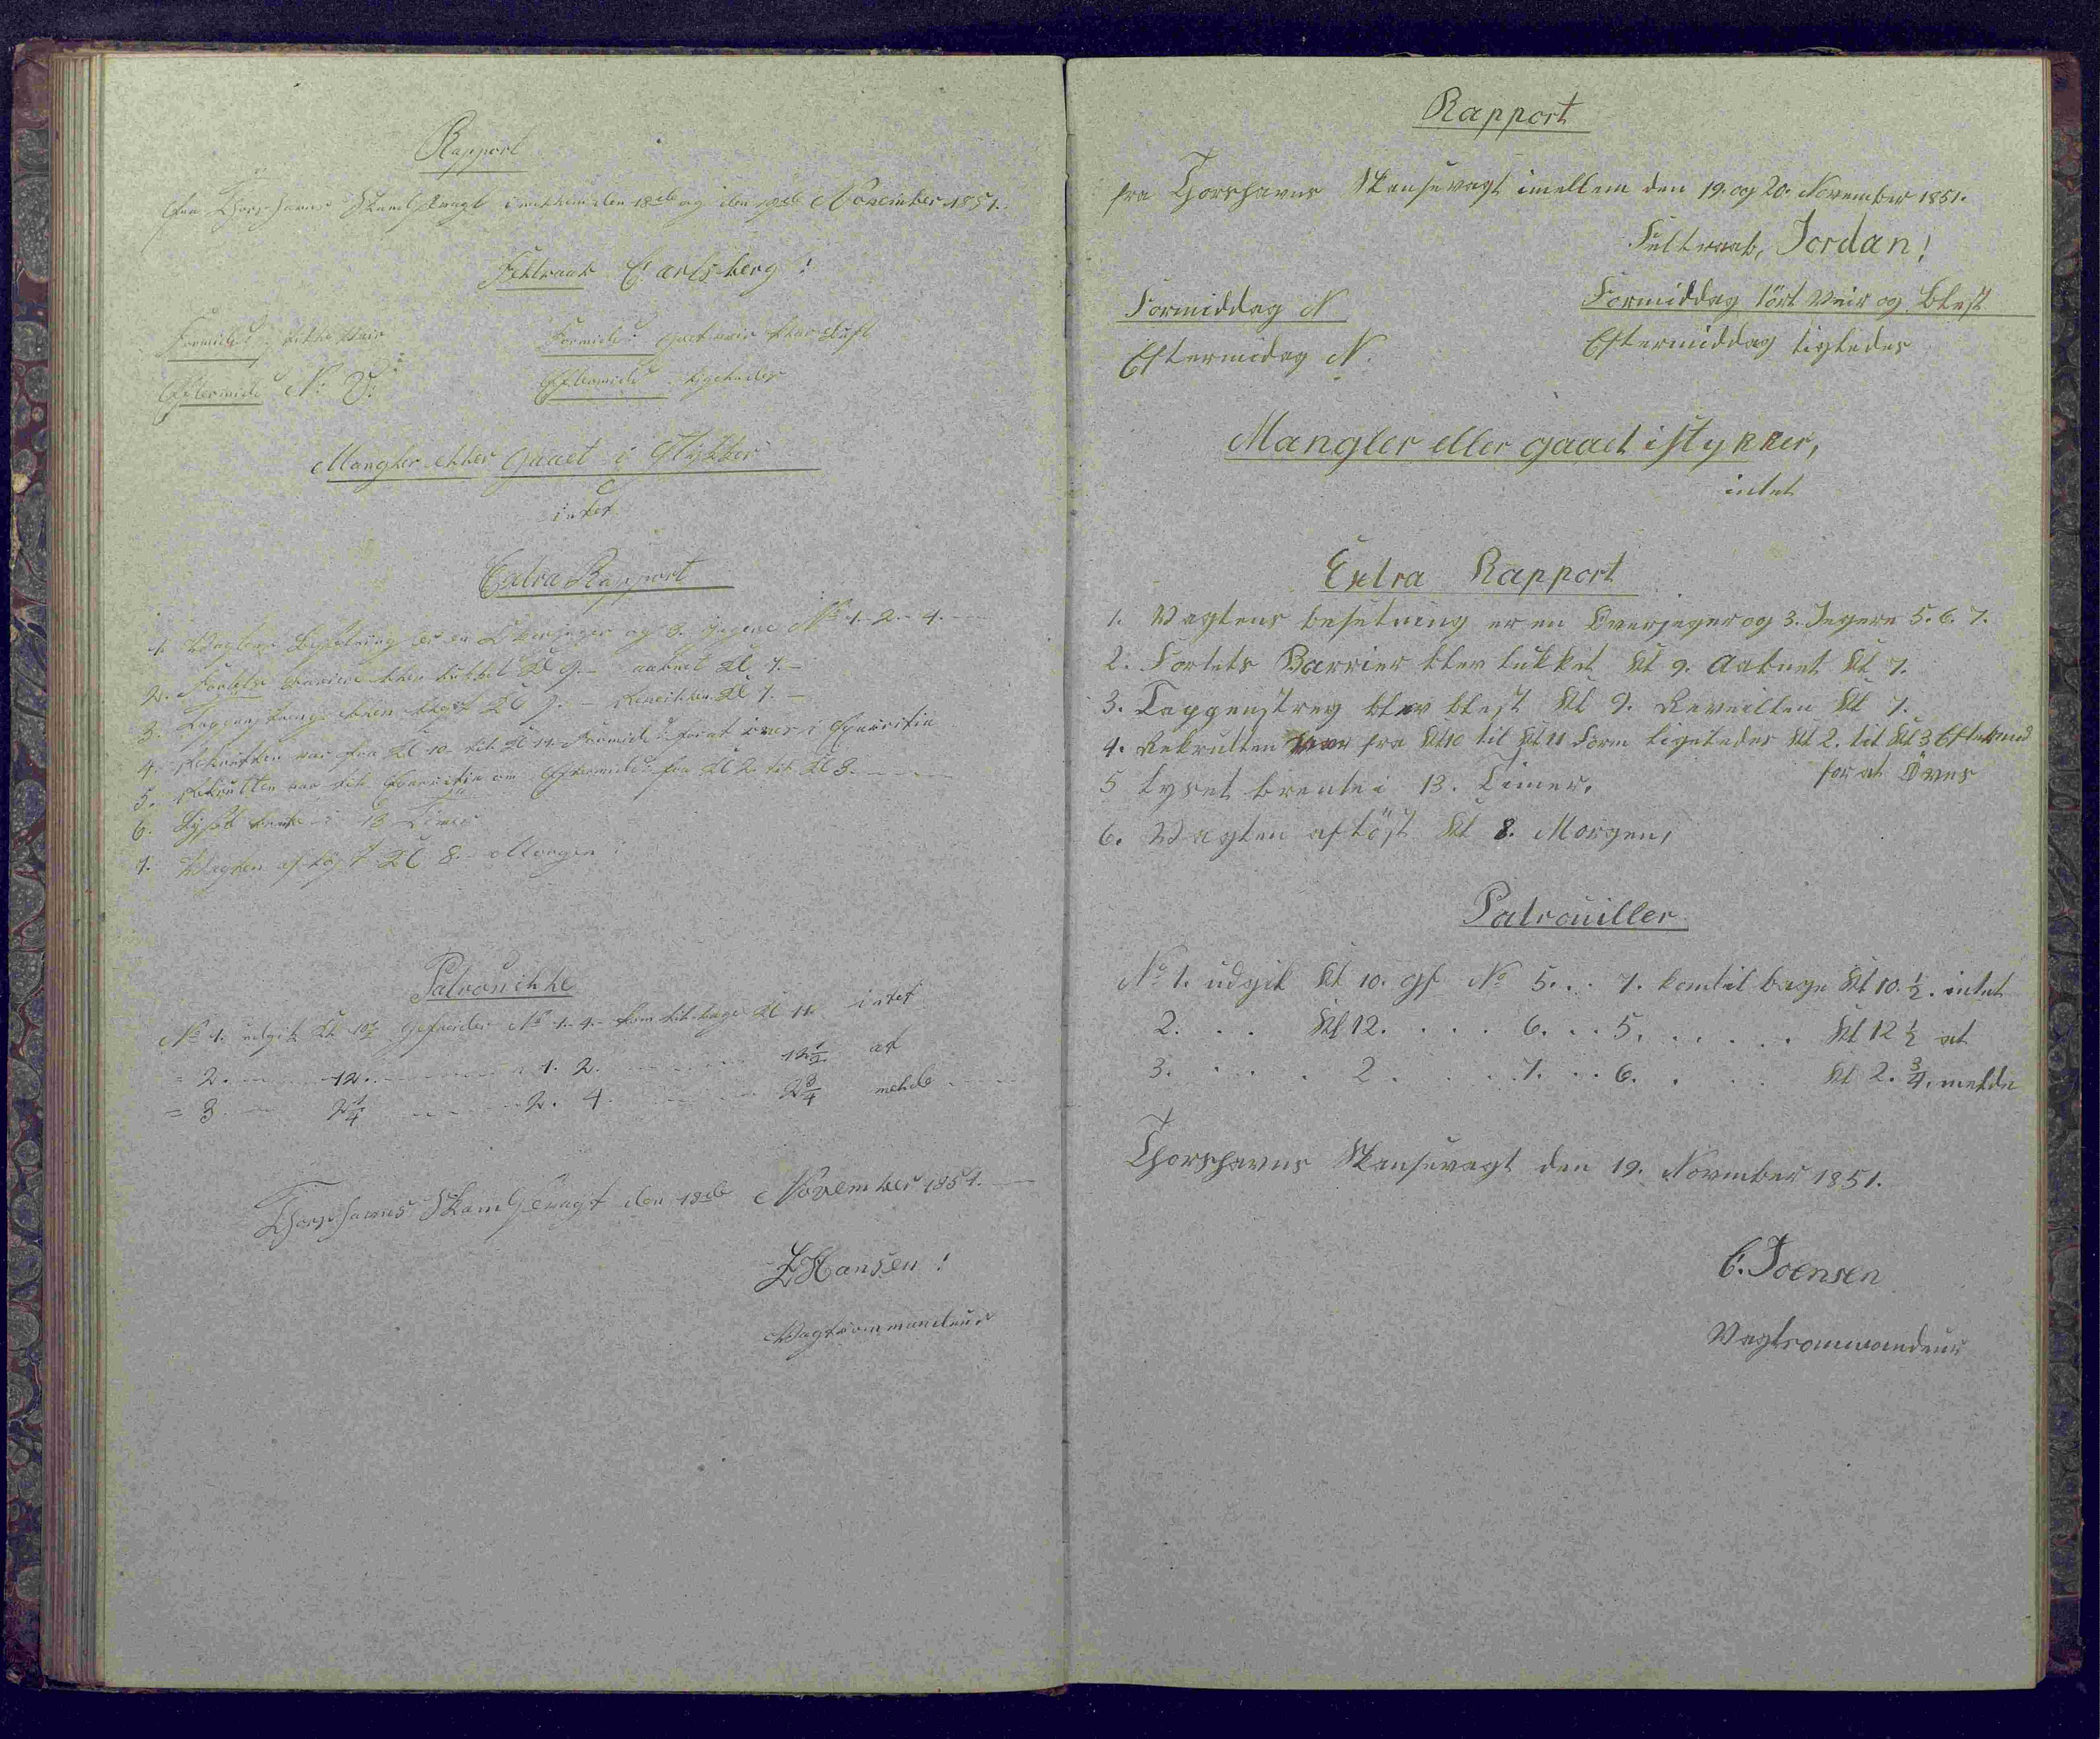 Rapport
fra Thorshavns Skandsevagt imellem den 18de og den 19de November 1851.
Feltraab Carlsberg!
Formidd: stille Veir
Formidd: godt veir klar Luft
Eftermidd N: O:
Eftermidd: ligeledes
Mangler eller gaaet i Stykker
intet
Extra Rapport
1. Vagtens Besetning er en Overjæger og 3. Jægere No 1. 2. 4.
2. Fortets Barriere blev lukket Kl 9. - aabnet Kl 7. -
3. Tappenstreng blev blæst Kl 9. - Reveillen Kl 7. -
4. Rekrutten var fra Kl 10 til Kl 11 Formidd: for at öves i Exercitie
5. Rekrutten var til Exercitie om Eftermidd: fra Kl 2. til Kl 3.
6. Lyset brente i 13 Timer
7. Vagten aflöst Kl 8. - Morgen:
Patrouille
No 1. udgik Kl 10½ Gefreider No 1. 4. kom tilbage Kl 11. intet
= 2. 12. 1. 2. 12½ at
= 3. 2¼ 2. 4. 2¾ melde
Thorshavns Skandsevagt den 18de November 1851.
Hansen!
Vagtcommandeur
Rapport
fra Thorshavns Skansevagt imellem den 19. og 20. November 1851.
Feltraab, Jordan!
Formiddag N
Formiddag tört Veir og blest
Eftermidag N.
Eftermiddag ligeledes
Mangler eller gaaet istykker,
intet
Extra Rapport
1. Vagtens besetning er en Överjeger og 3. Jegere 5. 6. 7.
2. Fortets Barrier blev lukket Kl 9. Aabnet Kl 7.
3. Tappenstreg blev blest Kl 9. Reveillen Kl 7.
4. Rekrutten var fra Kl 10 til Kl 11 Form ligeledes Kl 2. til Kl 3 Eftermid
for at Öves
5 Lyset brente i 13. Timer.
6. Vagten aflöst Kl 8. Morgen,
Patrouiller
No 1. udgik Kl 10. gf No 5... 7. kom tilbage Kl 10. ½. intet
2. . . Kl 12. . . . 6. . . 5. . . . . . Kl 12 ½ at
3. . . . . 2. . . . 7. . . 6. . . . Kl 2. ¾. melde
Thorshavns Skansevagt den 19. November 1851.
C. Joensen
Vagtcommandeur